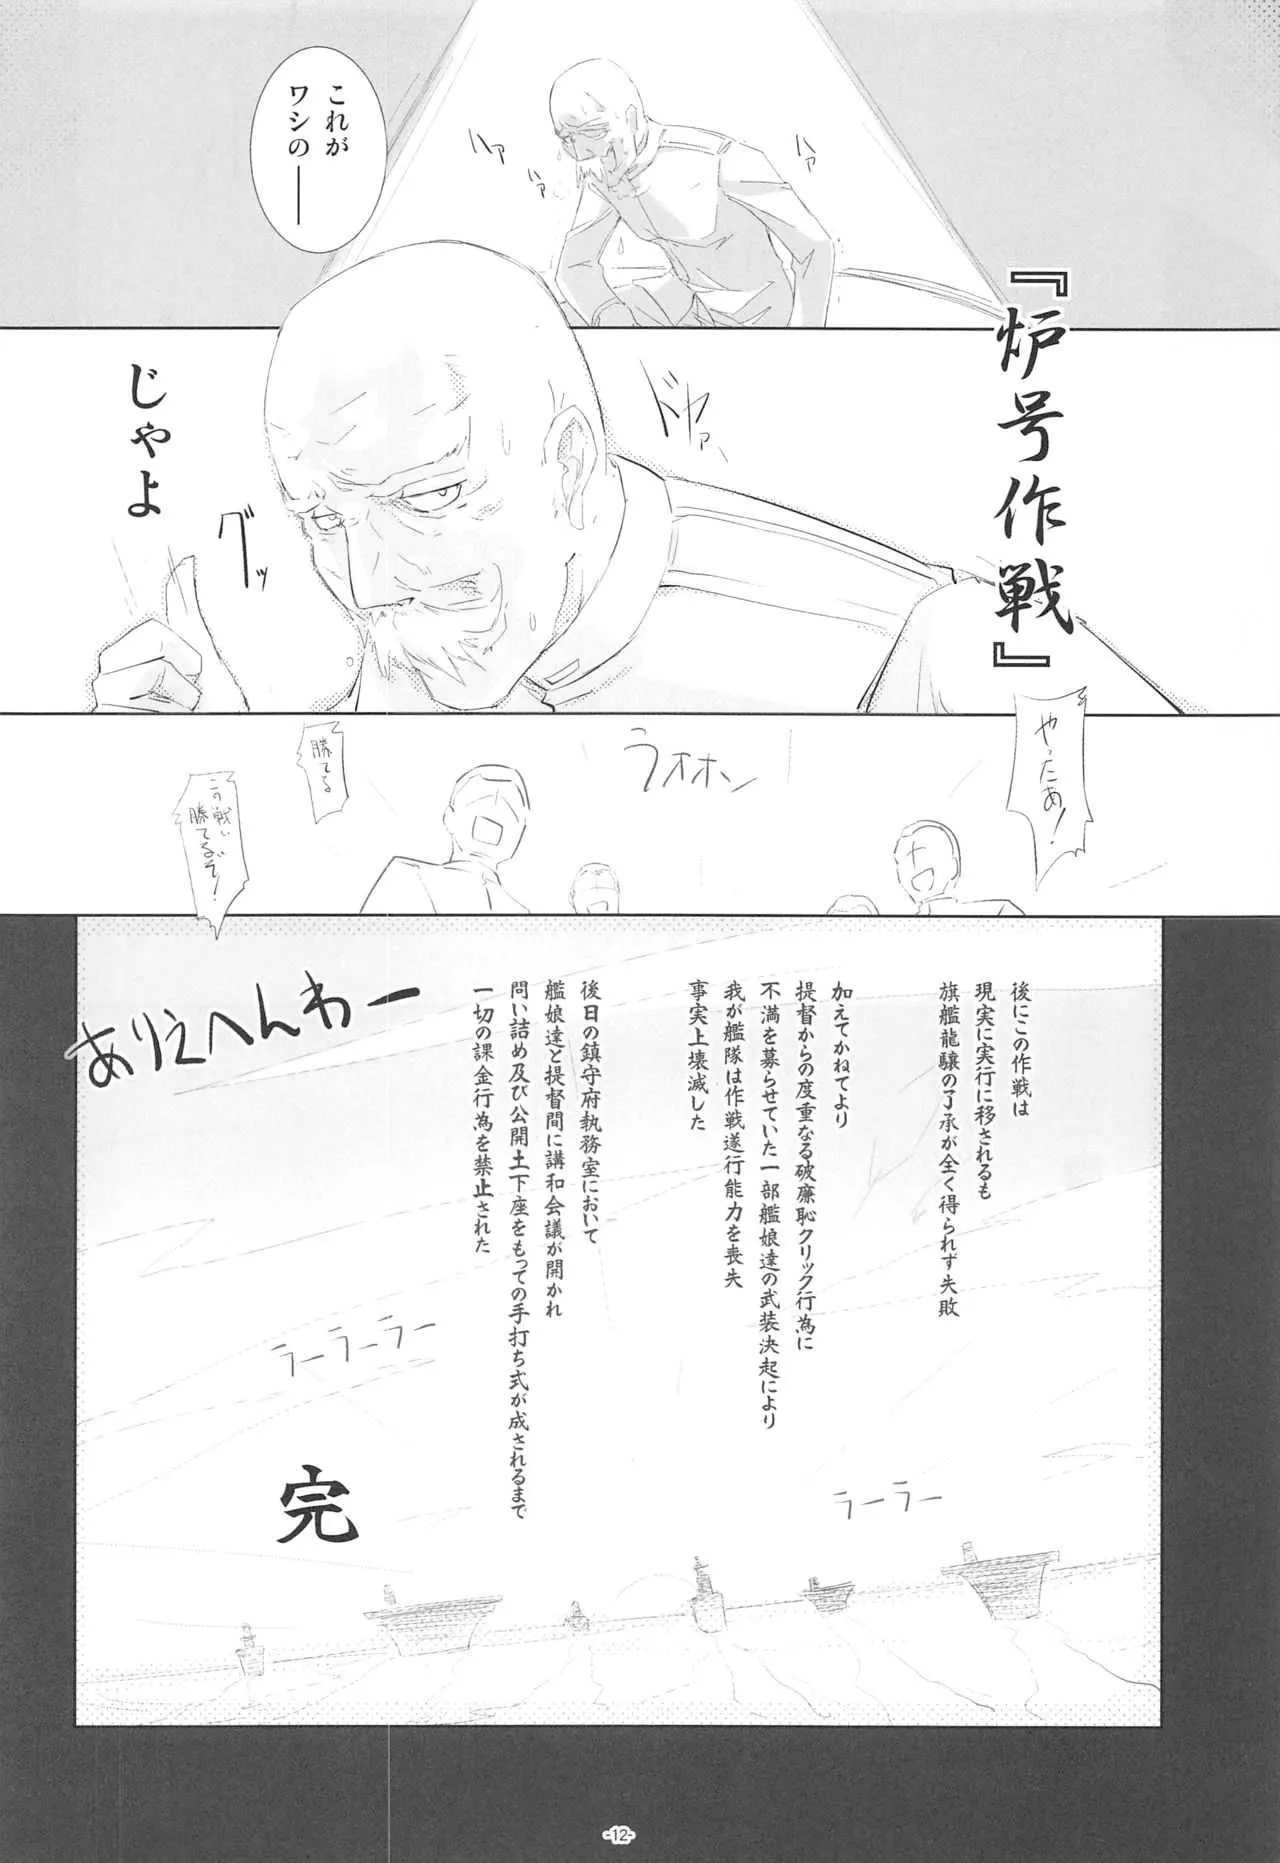 これが
ワシの──
ハァ
ハァ
ハァ
『炉号作戦』
じゃよ
ドヤァ、
グッ
やったあ！
ウオホン
勝てる
この戦い
勝てるぞ！
後にこの作戦は
現実に実行に移されるも
旗艦龍驤の了承が全く得られず失敗
加えてかねてより
提督からの度重なる破廉恥クリック行為に
不満を募らせていた一部艦娘達の武装決起により
我が艦隊は作戦遂行能力を喪失
事実上壊滅した
後日の鎮守府執務室において
艦娘達と提督間に講和会議が開かれ
問い詰め及び公開土下座をもっての手打ち式が成されるまで
一切の課金行為を禁止された
ありえへんわー
ラーラーラー
ラーラー
完
-12-